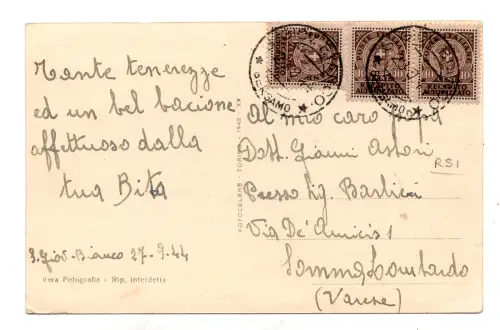 Tante tenerezze
ed un bel bacione
affettuoso dalla
tua Bita
S. Giov. Bianco 27-9.44
Vera Fotografia - Rip. interdetta
FOTOCELERE - TORINO - 1942 - XX
BERGAMO
POSTE ITALIANE
10 10
RECAPITO
AUTORIZZATO
Al mio caro
Dott. Gianni Astori
RSI
Presso Sig. Barbieri
Via De' Amicis 1
Somma Lombardo
(Varese)